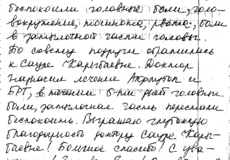 беспокоили головные боли, голо-
вокружение, тошнота, рвота, боли
в затылочной части головы.
По совету подруги обратилась
к Сауре Каржаевне. Доктор
назначил лечение
БРТ, в течении 5-ти дней головные
боли, затылочная часть перестали
беспокоить. Выражаю глубокую
благодарность доктору Сауре Кар-
Большое спасибо! С ува-